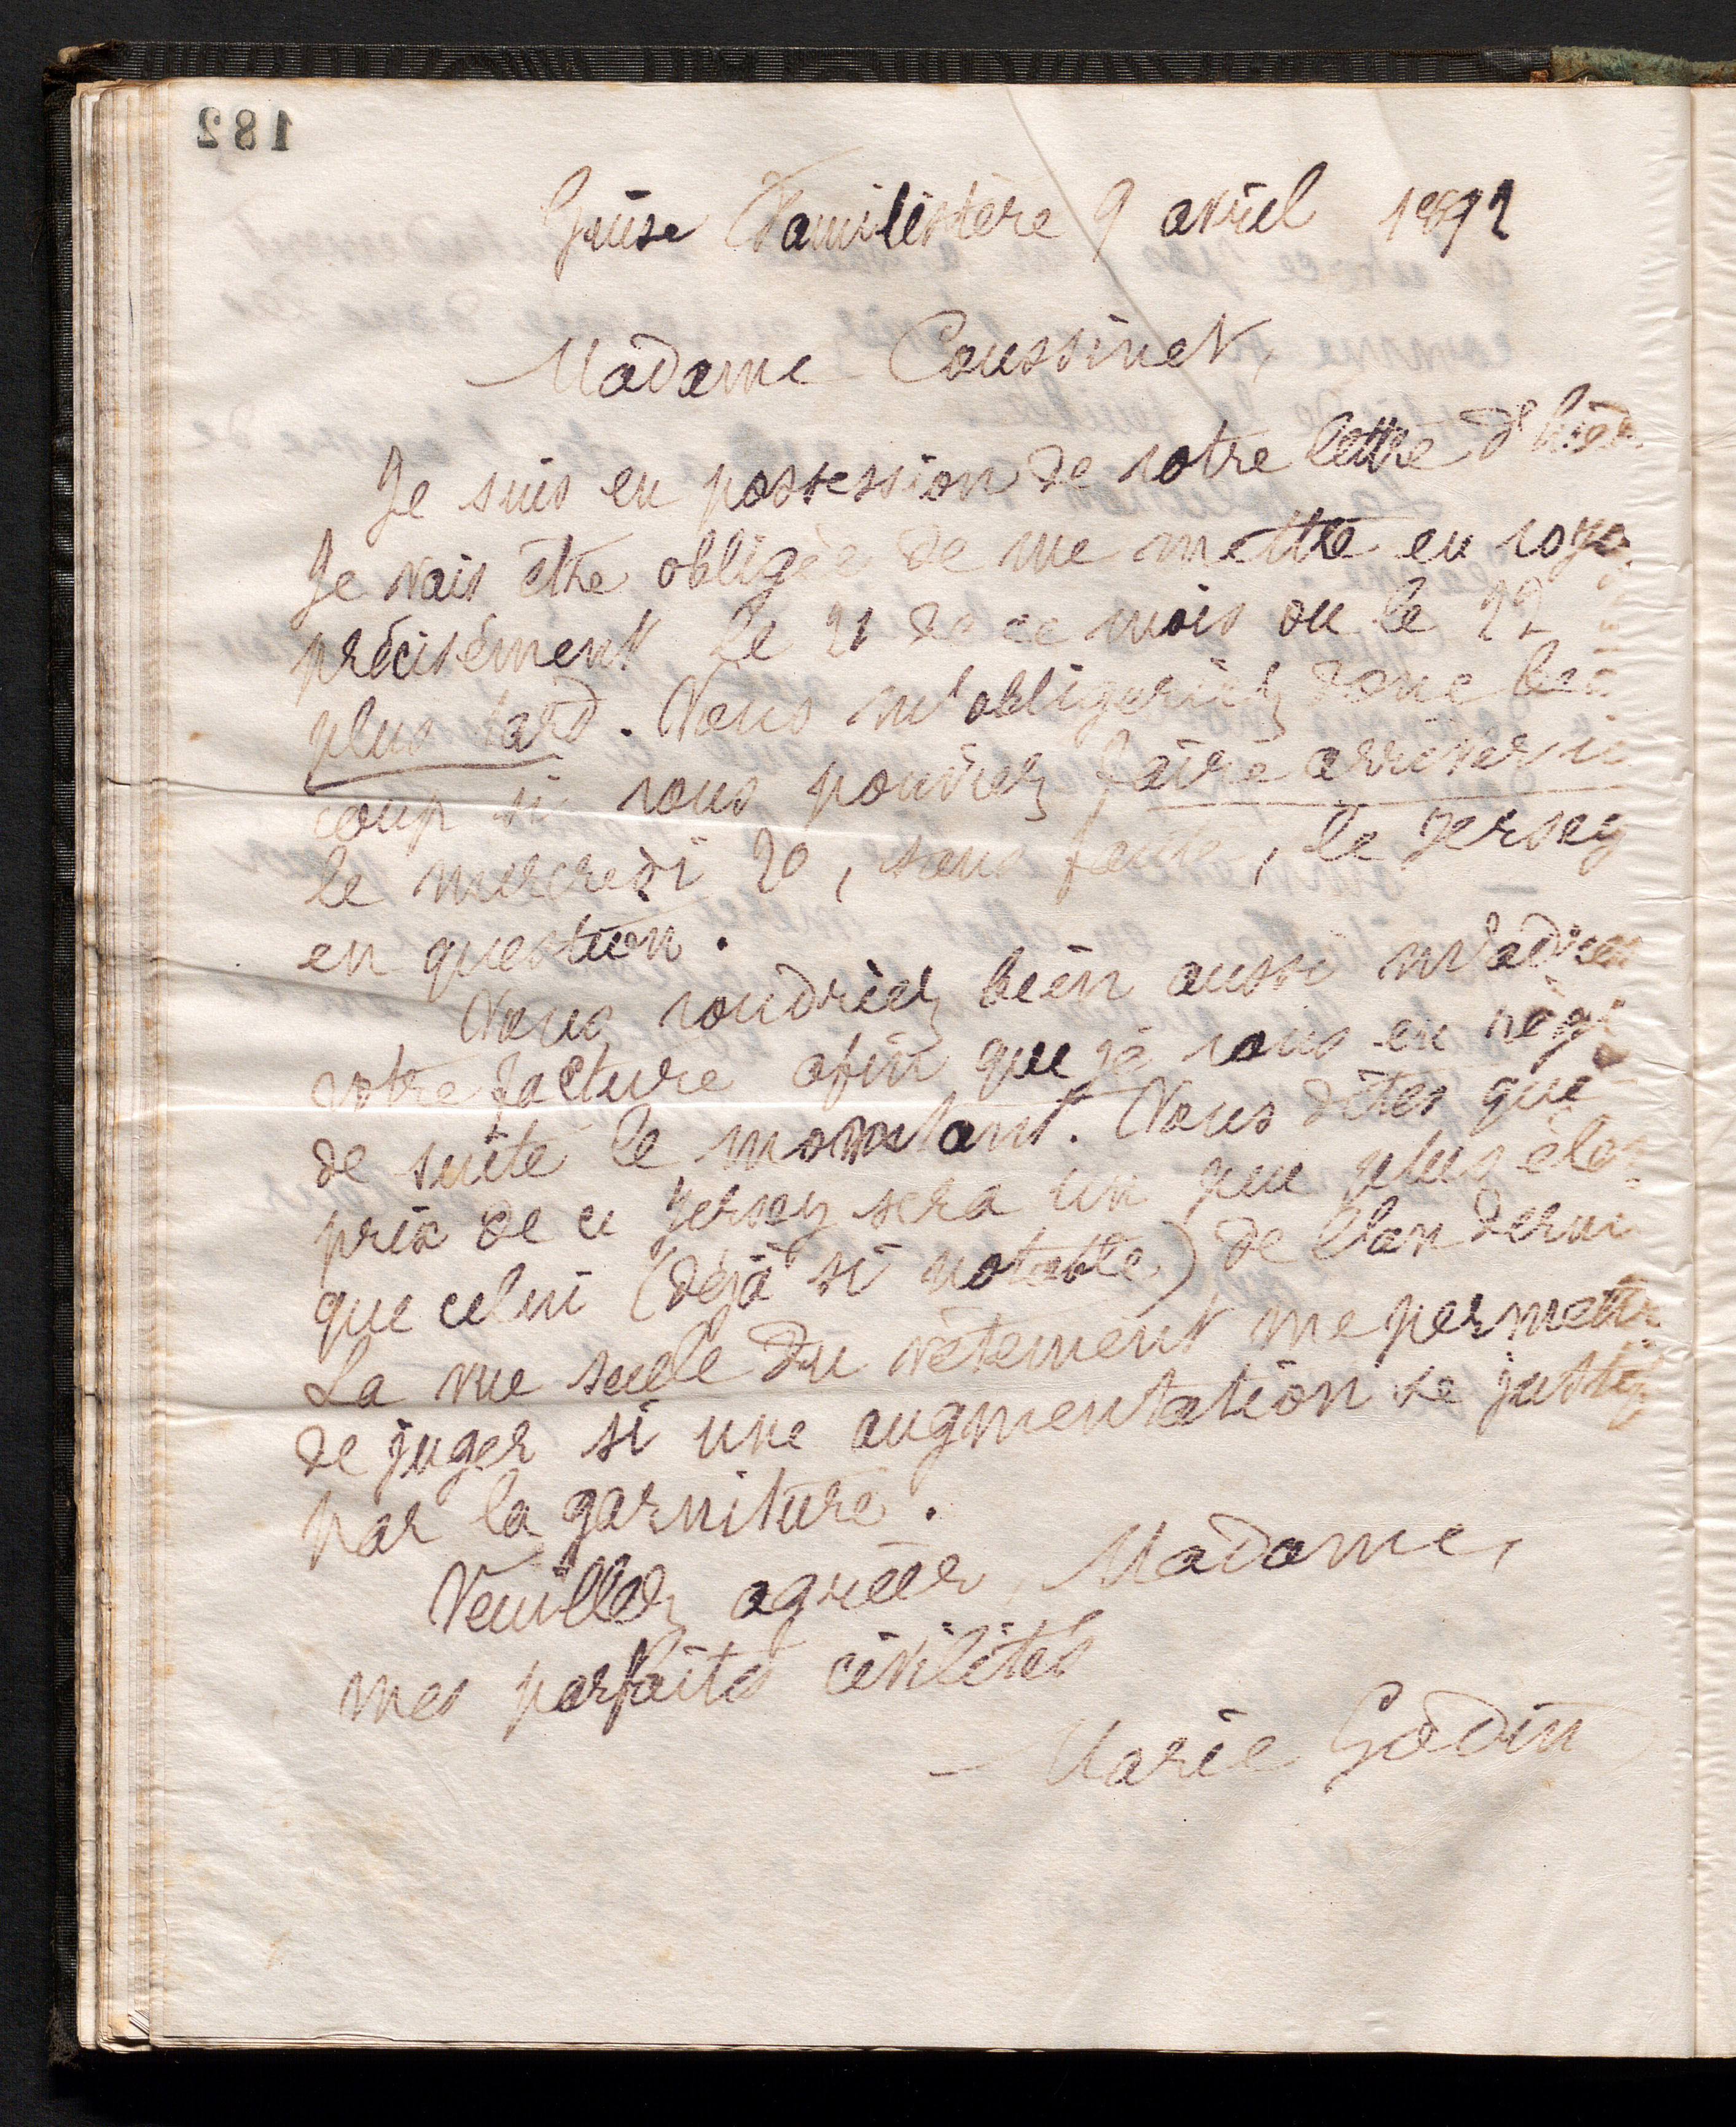 182
Guise Familistère 9 avril 1892
Madame Coussinet,
Je suis en possession de votre lettre d'hier.
Je vais être obligée de me mettre en voya
précisément le 21 de ce mois ou le 22
plus tard. Vous m'obligeriez donc beau
coup si vous pouviez faire arriver ici
le mercredi 20, sans faute, le Jersey
en question.
Vous voudriez bien aussi m'adres
votre facture afin que je vous en règle
de suite le montant. Vous dites que
prix de ce Jersey sera un peu plus élev
que celui (déjà si notable) de l'an derni
La vue seule du vêtement me permettr
de juger si une augmentation se justifi
par la garniture.
Veuillez agréer, Madame,
mes parfaites civilités
Marie Godin